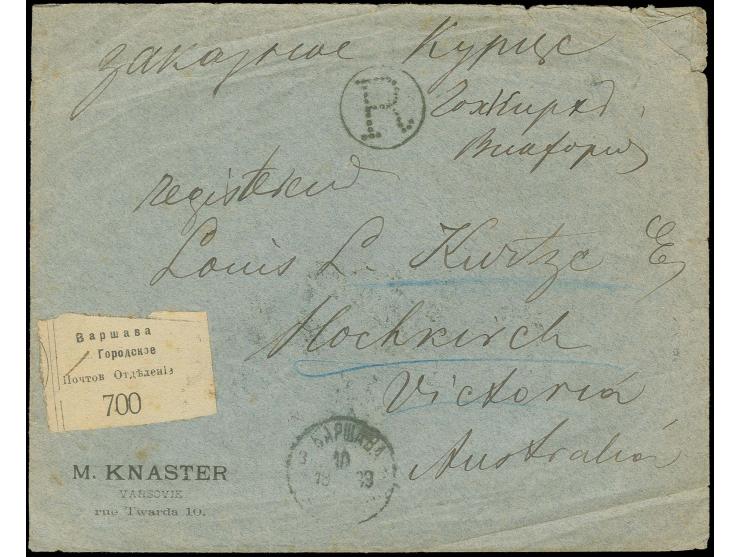 заказное Курце
R
Гохкирх
Виктория
registered
Louis L. Kurtze E
Hochkirch
Victoria
Australia
Варшава
Городское
Почтов Отдѣленiе
700
ВАРШАВА
10
M. KNASTER
VARSOVIE
rue Twarda 10.